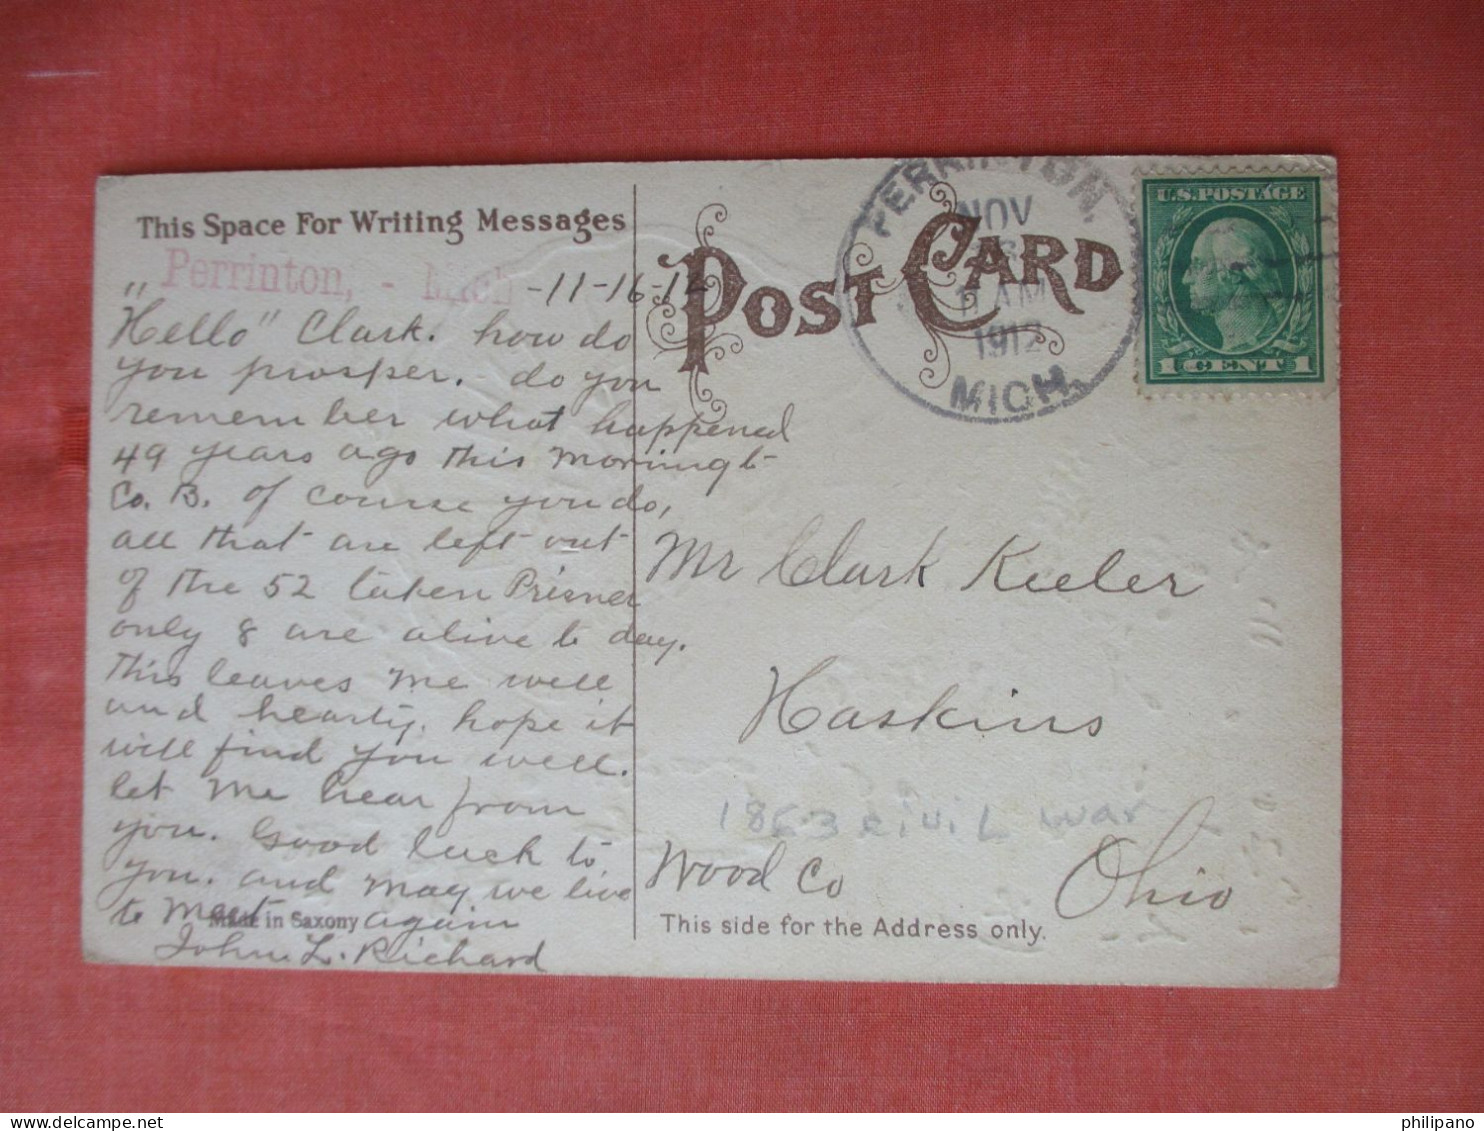 This Space For Writing Messages
Perrinton, - Mich
-11-16-12
"Hello" Clark. how do
you prosper. do you
remember what happened
49 years ago this morning to
Co. B. of course you do,
all that are left out
of the 52 taken Prisner
only 8 are alive to day.
this leaves me well
and hearty. hope it
will find you well.
let me hear from
you. Good luck to
you. and may we live
to meet again
Made in Saxony
John L. Richard
POST CARD
PERRINTON,
NOV
AM
1912
MICH.
U.S. POSTAGE
1 CENT 1
Mr Clark Keeler
Haskins
1863 civil war
Wood Co Ohio
This side for the Address only.
philipano